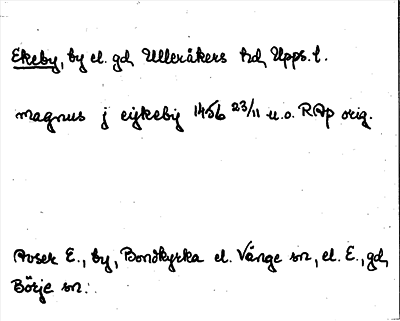 Ekeby, by el. gd, Ulleråkers hd, Upps. l.
magnus j eykeby 1456 23/11 u.o. RAp orig.
Avser E., by, Bondkyrka el. Vänge sn, el. E., gd,
Börje sn.